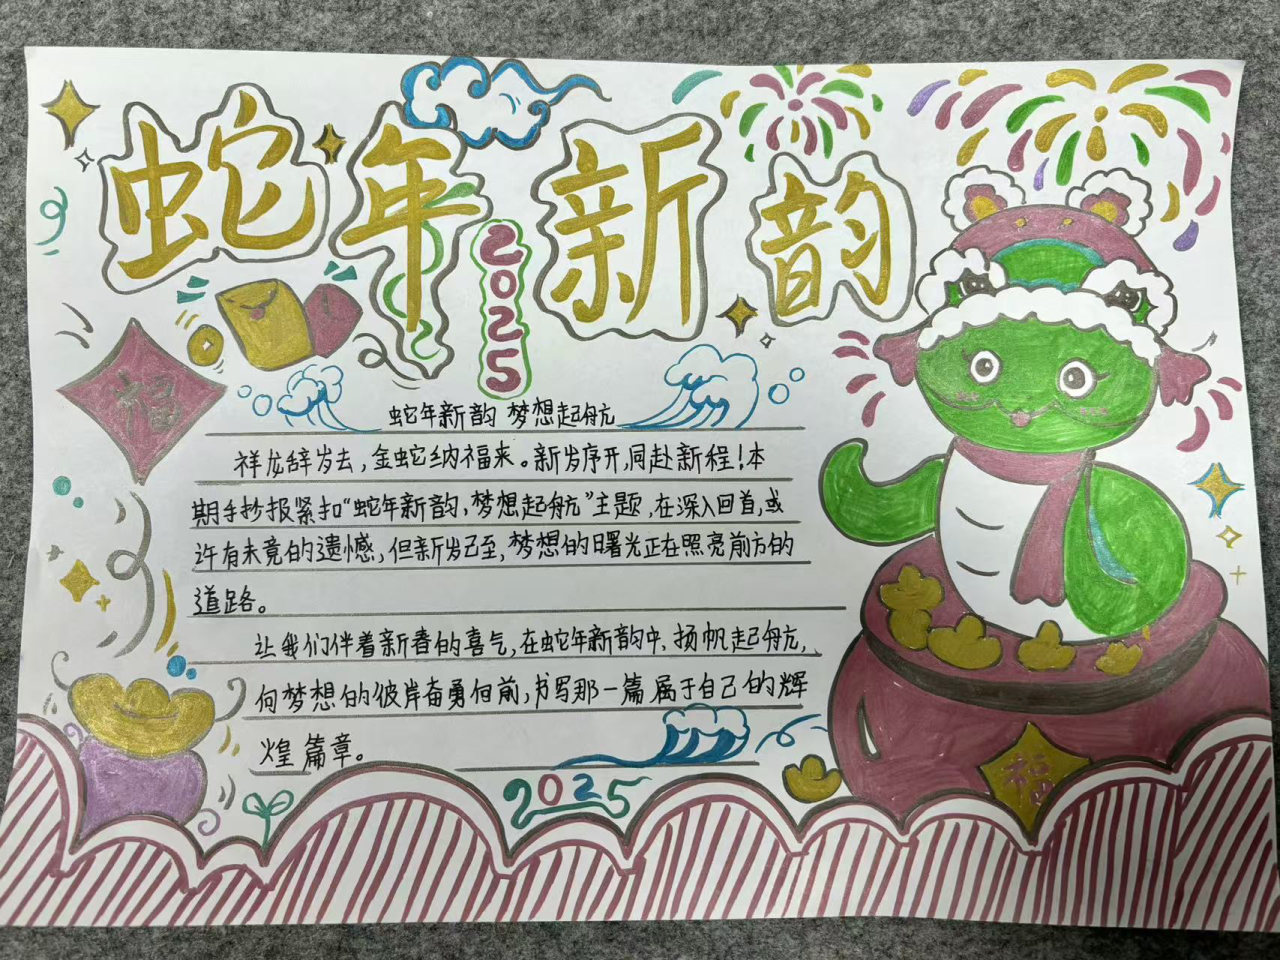 蛇年新韵
2025
福
蛇年新韵 梦想起航
祥龙辞岁去,金蛇纳福来。新岁序开,同赴新程!本
期手抄报紧扣“蛇年新韵,梦想起航”主题,在深入回首,或
许有未竟的遗憾,但新岁已至,梦想的曙光正在照亮前方的
道路。
让我们伴着新春的喜气,在蛇年新韵中、扬帆起航,
向梦想的彼岸奋勇向前,书写那一篇属于自己的辉
煌篇章。
福
2025